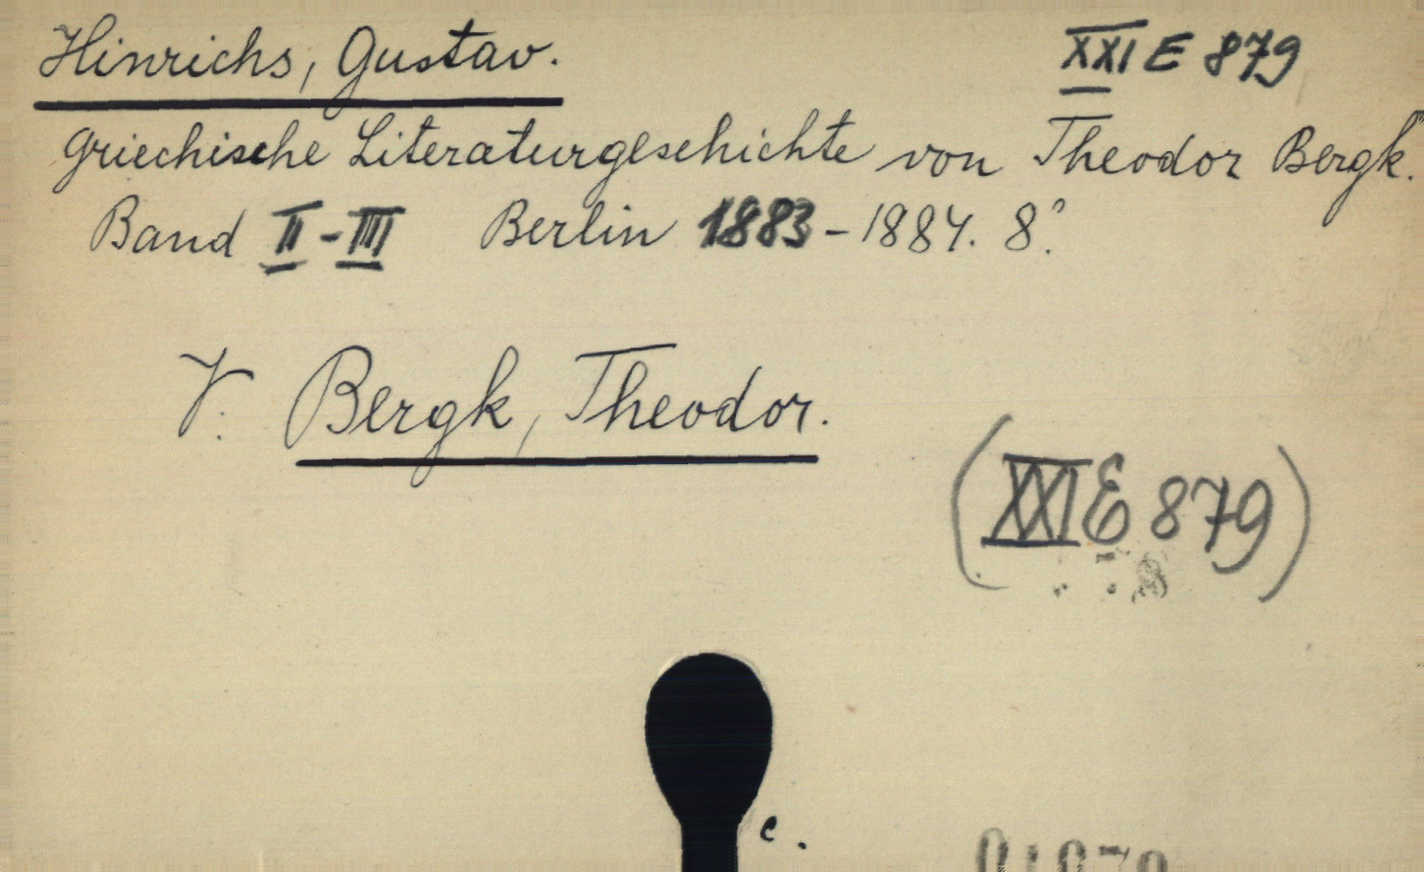 Hinrichs, Gustav.
XXI E 879
Griechische Literaturgeschichte von Theodor Bergk.
Band II-III Berlin 1883-1884. 8°.
V. Bergk, Theodor.
(XXI E 879)
c.